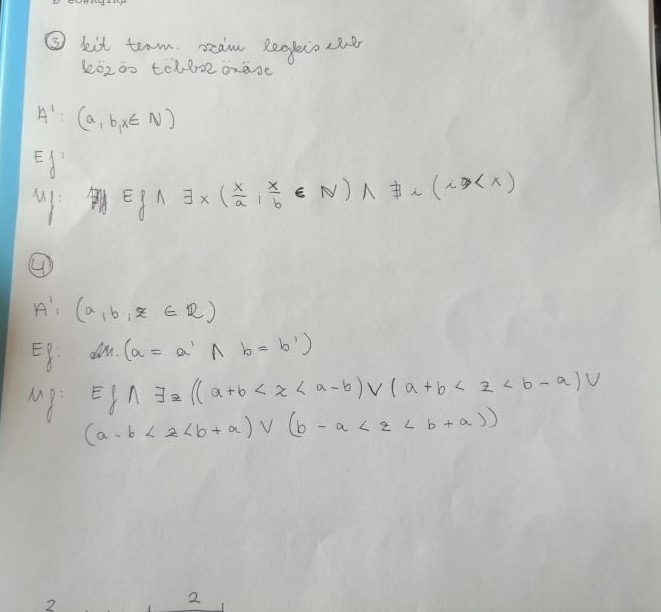 ③ két term. szám legkisebb
közös többszöröse
A': (a, b, x ∈ N)
Ef:
Uf: Ef ∧ ∃x (x/a ; x/b ∈ N) ∧ ∄ i (i < x)
④
A': (a, b, z ∈ R)
Ef: (a = a' ∧ b = b')
Uf: Ef ∧ ∃z ((a+b < z < a-b) ∨ (a+b < z < b-a) ∨
(a-b < z < b+a) ∨ (b-a < z < b+a))
2 2